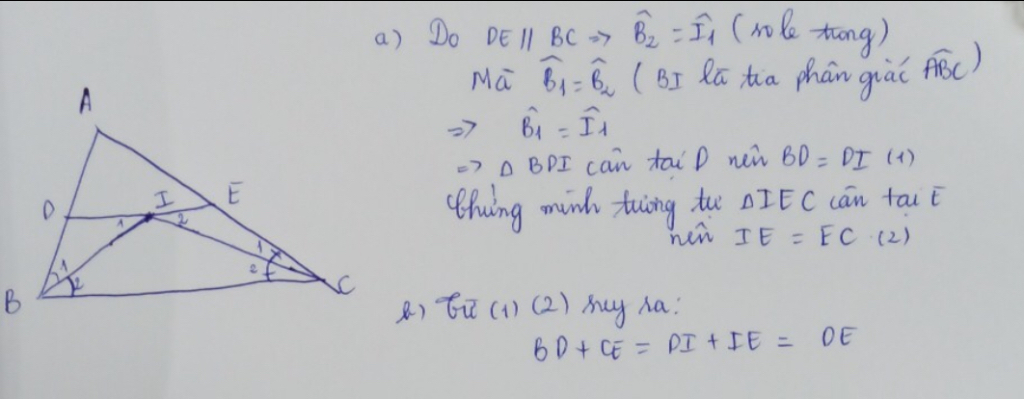 a) Do DE // BC => B̂2 = Î1 (so le trong)
Mà B̂1 = B̂2 ( BI là tia phân giác ABC )
=> B̂1 = Î1
=> Δ BDI cân tại D nên BD = DI (1)
Chứng minh tương tự Δ IEC cân tại E
nên IE = EC (2)
b) Từ (1) (2) suy ra:
BD + CE = DI + IE = DE
A
D
I
E
1
2
1
2
1
2
B
C